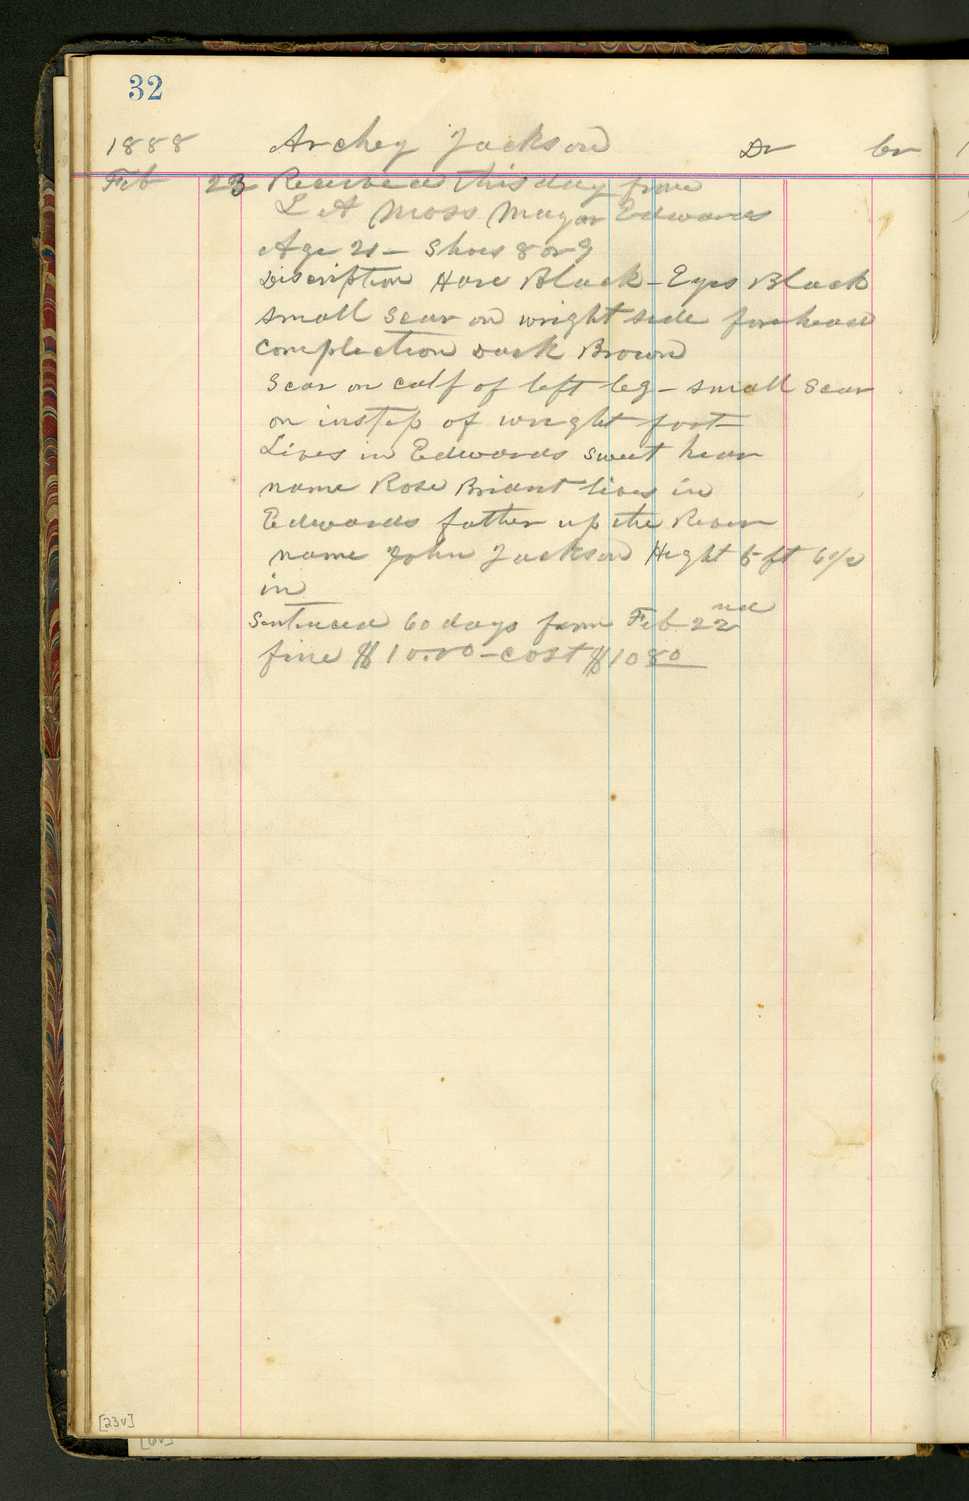 32
1888 Archey Jackson Dr Cr
Feb 23 Received this day from
L A Moss Mayor Edwards
Age 21 - Shoes 8 or 9
Discription Hare Black - Eyes Black
small scar on wright side forehead
complection Dark Brown
Scar on calf of left leg - small scar
on instep of wright foot
Lives in Edwards sweet hear
name Rose Briant lives in
Edwards father up the River
name John Jackson Hight 5 ft 6 1/2
in
Sentenced 60 days from Feb 22nd
fine $10.00 - cost $10 80
[23v]